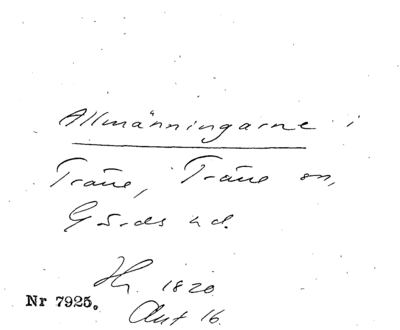 Allmänningarne i
Träne, Träne sn,
Gärds hd.
1820
Nr 7925.
Akt 16.